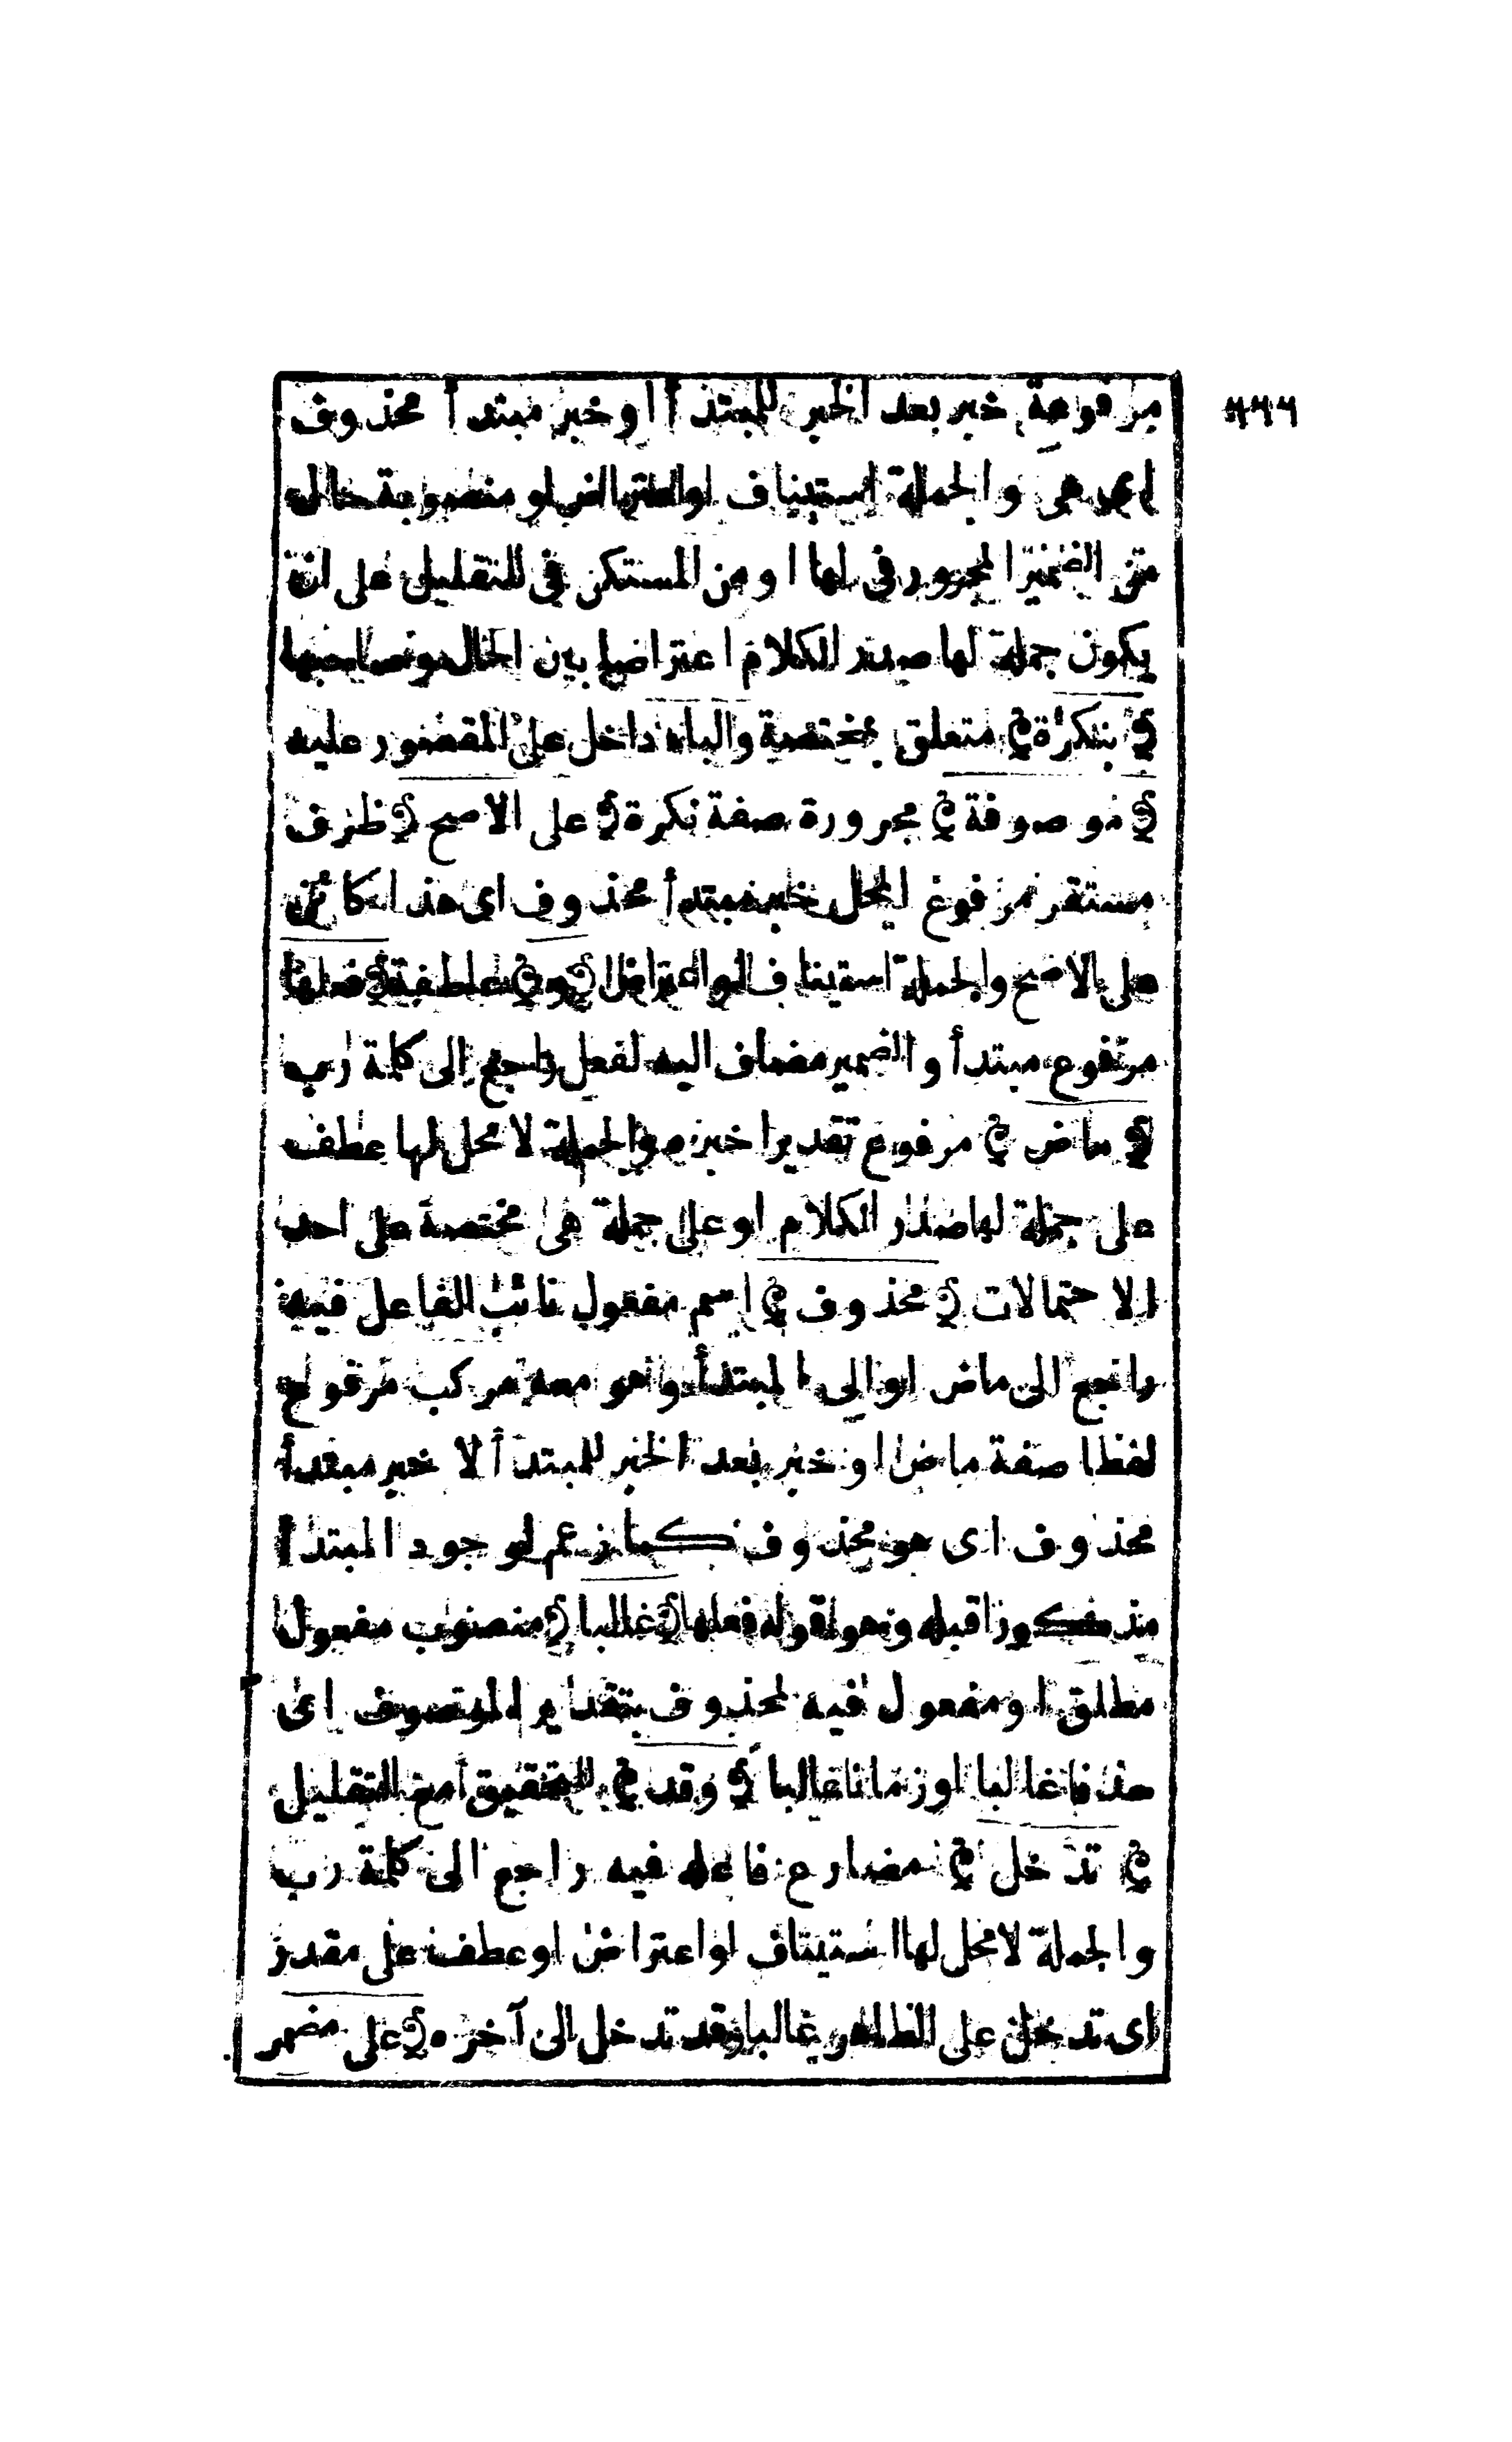 مرفوعة خبر بعد الخبر للمبتدأ او خبر مبتدأ محذوف
اى هى والجملة استيناف او اعتراض او منصوبة حال
من الضمير المجرور فى لها او من المستكن فى للتقليل على ان
يكون جملة لها صدر الكلام اعتراضا بين الحال وصاحبها
﴿ بنكرة ﴾ متعلق بمختصة والباء داخل على المقصور عليه
﴿ موصوفة ﴾ مجرورة صفة نكرة ﴿ على الاصح ﴾ ظرف
مستقر مرفوع المحل خبر مبتدأ محذوف اى هذا كائن
على الاصح والجملة استيناف او اعتراض ﴿ و ﴾ عاطفة ﴿ فعلها ﴾
مرفوع مبتدأ والضمير مضاف اليه لفعل راجع الى كلمة رب
﴿ ماض ﴾ مرفوع تقديرا خبره والجملة لا محل لها عطف
على جملة لها صدر الكلام او على جملة هى مختصة على احد
الاحتمالات ﴿ محذوف ﴾ اسم مفعول نائب الفاعل فيه
راجع الى ماض او الى المبتدأ وهو معه مركب مرفوع
لفظا صفة ماض او خبر بعد الخبر للمبتدأ لا خبر مبتدأ
محذوف اى هو محذوف كما زعم لوجود المبتدأ
مذكورا قبله وهو قوله فعلها ﴿ غالبا ﴾ منصوب مفعول
مطلق او مفعول فيه لمحذوف بتقدير الموصوف اى
حذفا غالبا او زمانا غالبا ﴿ وقد ﴾ للتحقيق مع التقليل
﴿ تدخل ﴾ مضارع فاعله فيه راجع الى كلمة رب
والجملة لا محل لها استيناف او اعتراض او عطف على مقدر
اى تدخل على الظاهر غالبا وقد تدخل الى آخره ﴿ على مضمر